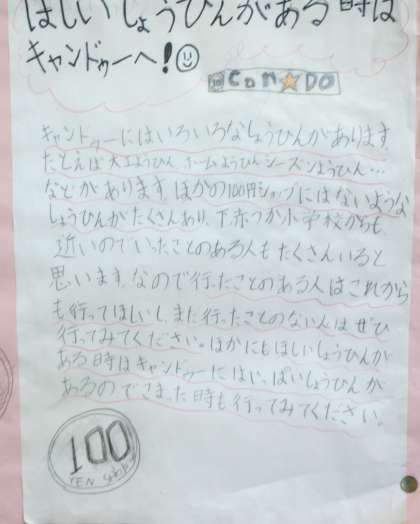 ほしいしょうひんがある時は
キャンドゥーへ!
Can★DO
キャンドゥーにはいろいろなしょうひんがあります
たとえば大工ようひん ホームようひん シーズンようひん…
などがあります。ほかの100円ショップにはないような
しょうひんがたくさんあり、下赤つか小学校からも
近いのでいったことのある人もたくさんいると
思います。なので行ったことのある人はこれから
も行ってほしいし、また行ったことのない人はぜひ
行ってみてください。ほかにもほしいしょうひんが
ある時はキャンドゥーにはいっぱいしょうひんが
あるのでこまった時も行ってみてください。
100
YEN